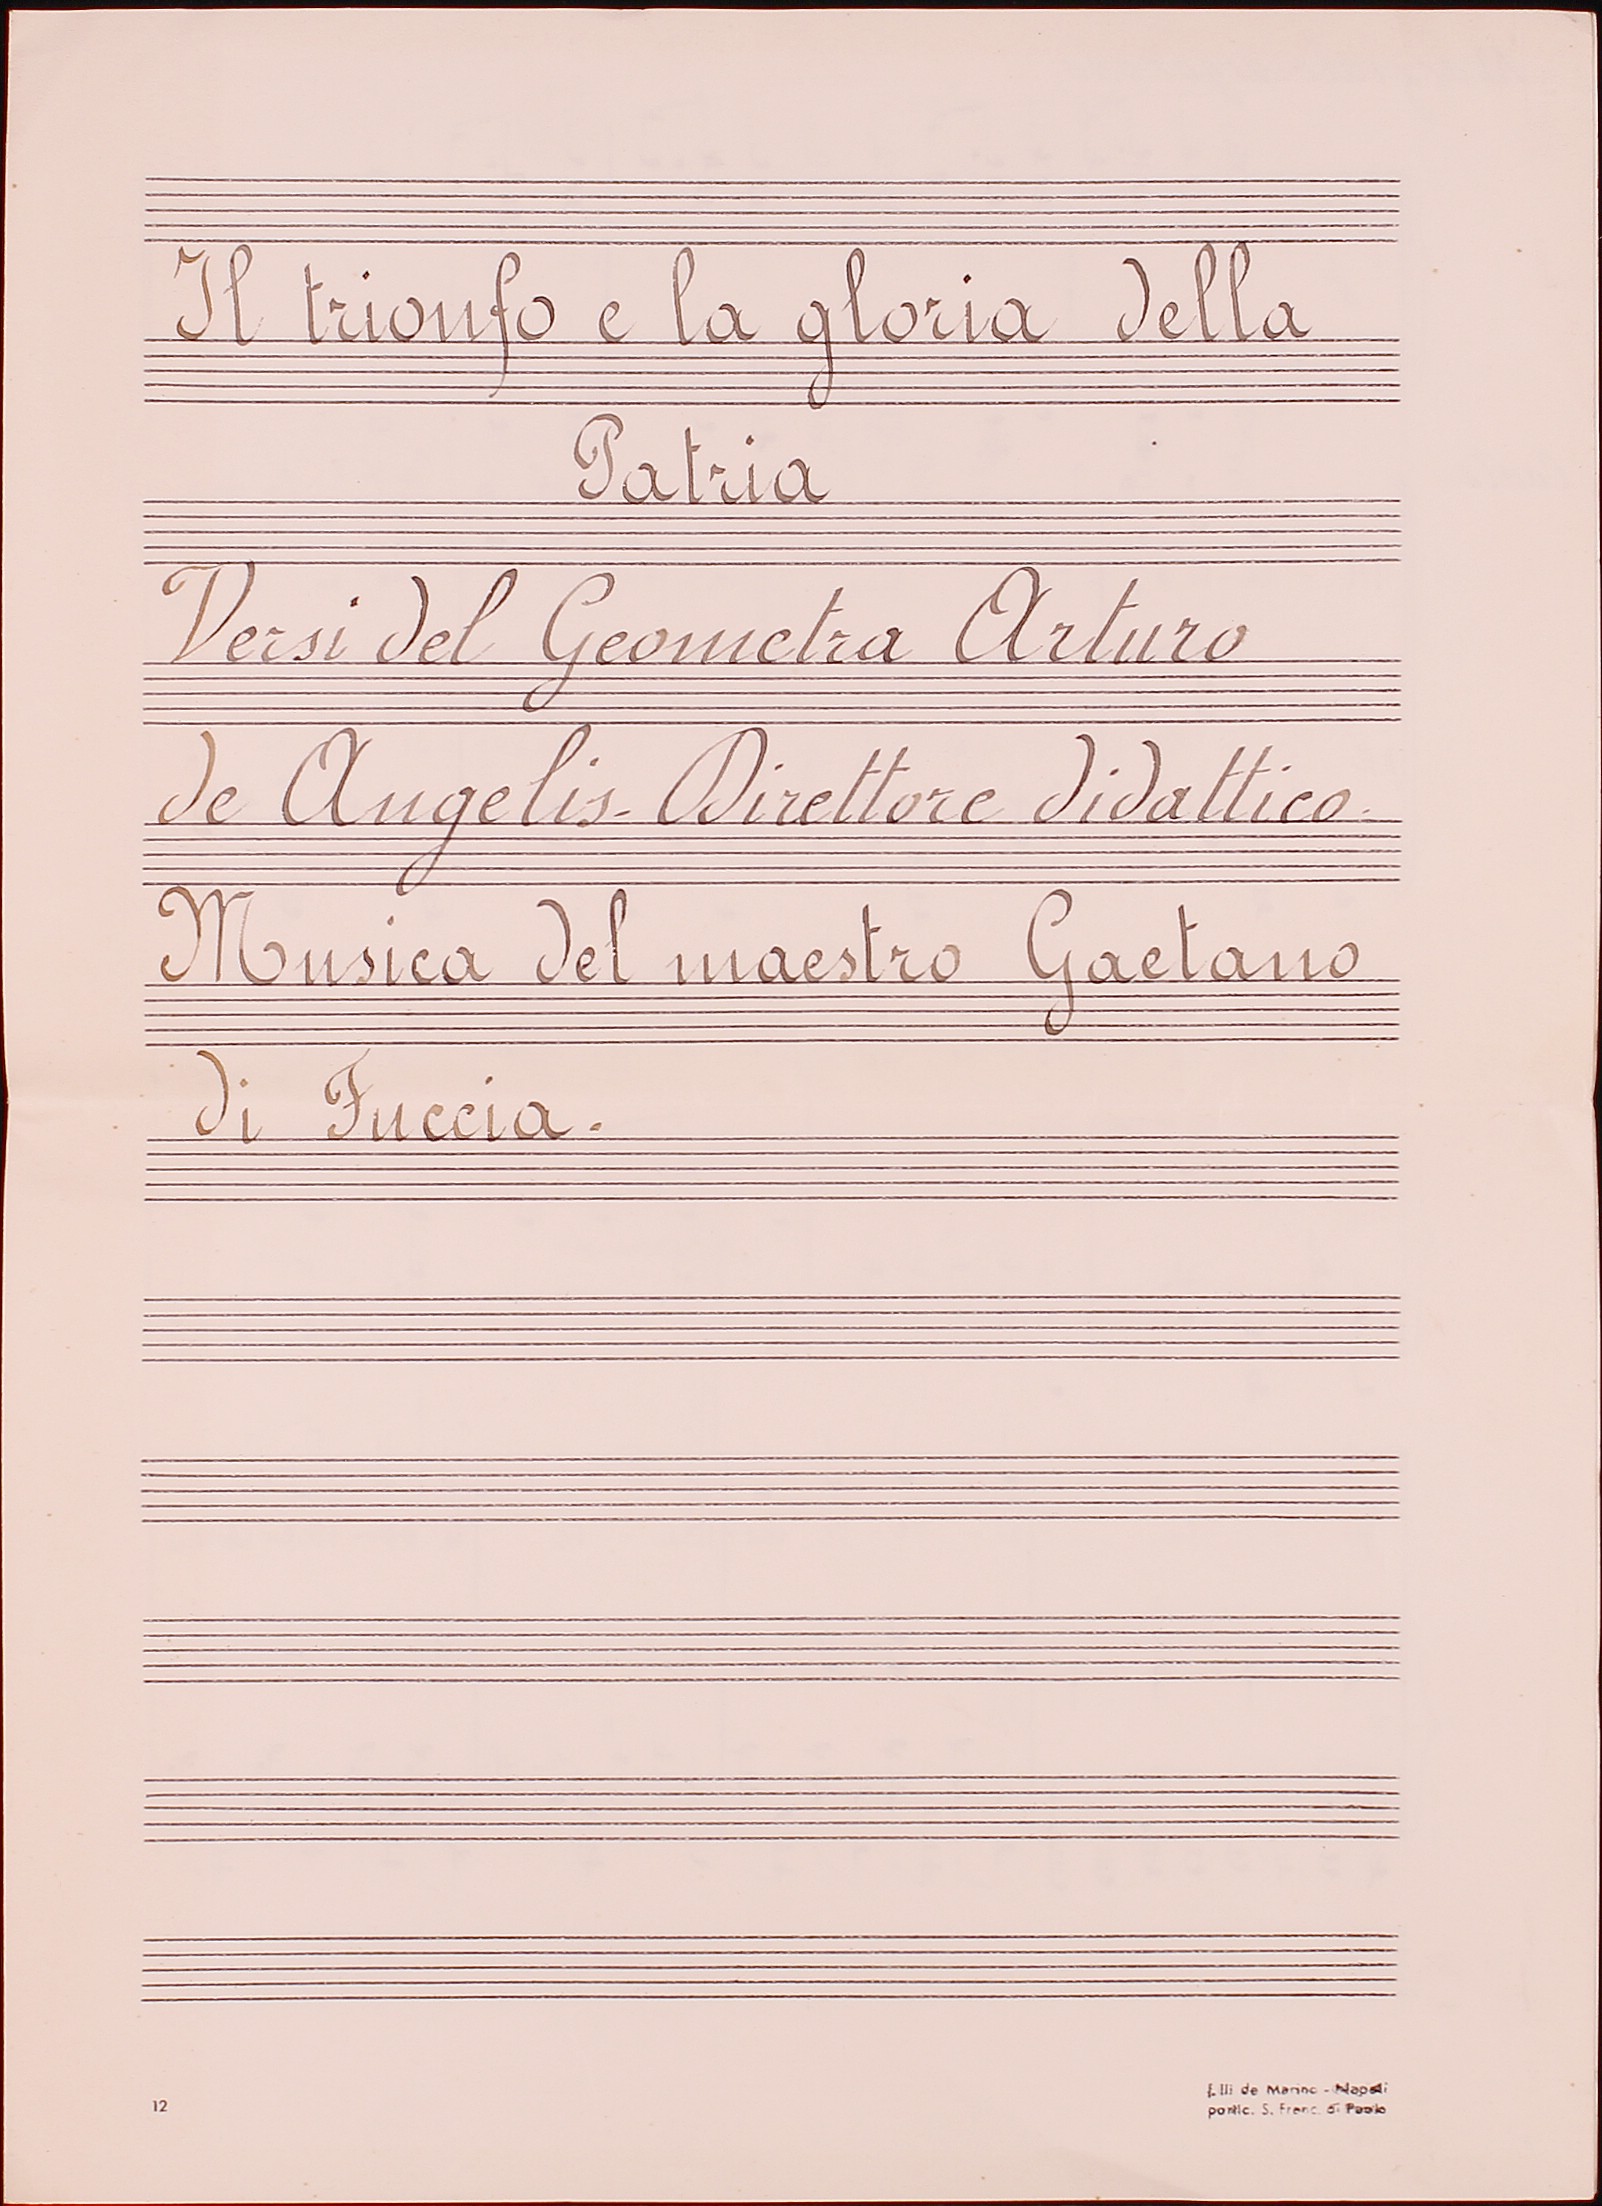 Il trionfo e la gloria della
Patria
Versi del Geometra Arturo
de Angelis - Direttore didattico -
Musica del maestro Gaetano
di Fuccia.
12
f.lli de Marino - Napoli
portic. S. Franc. di Paolo